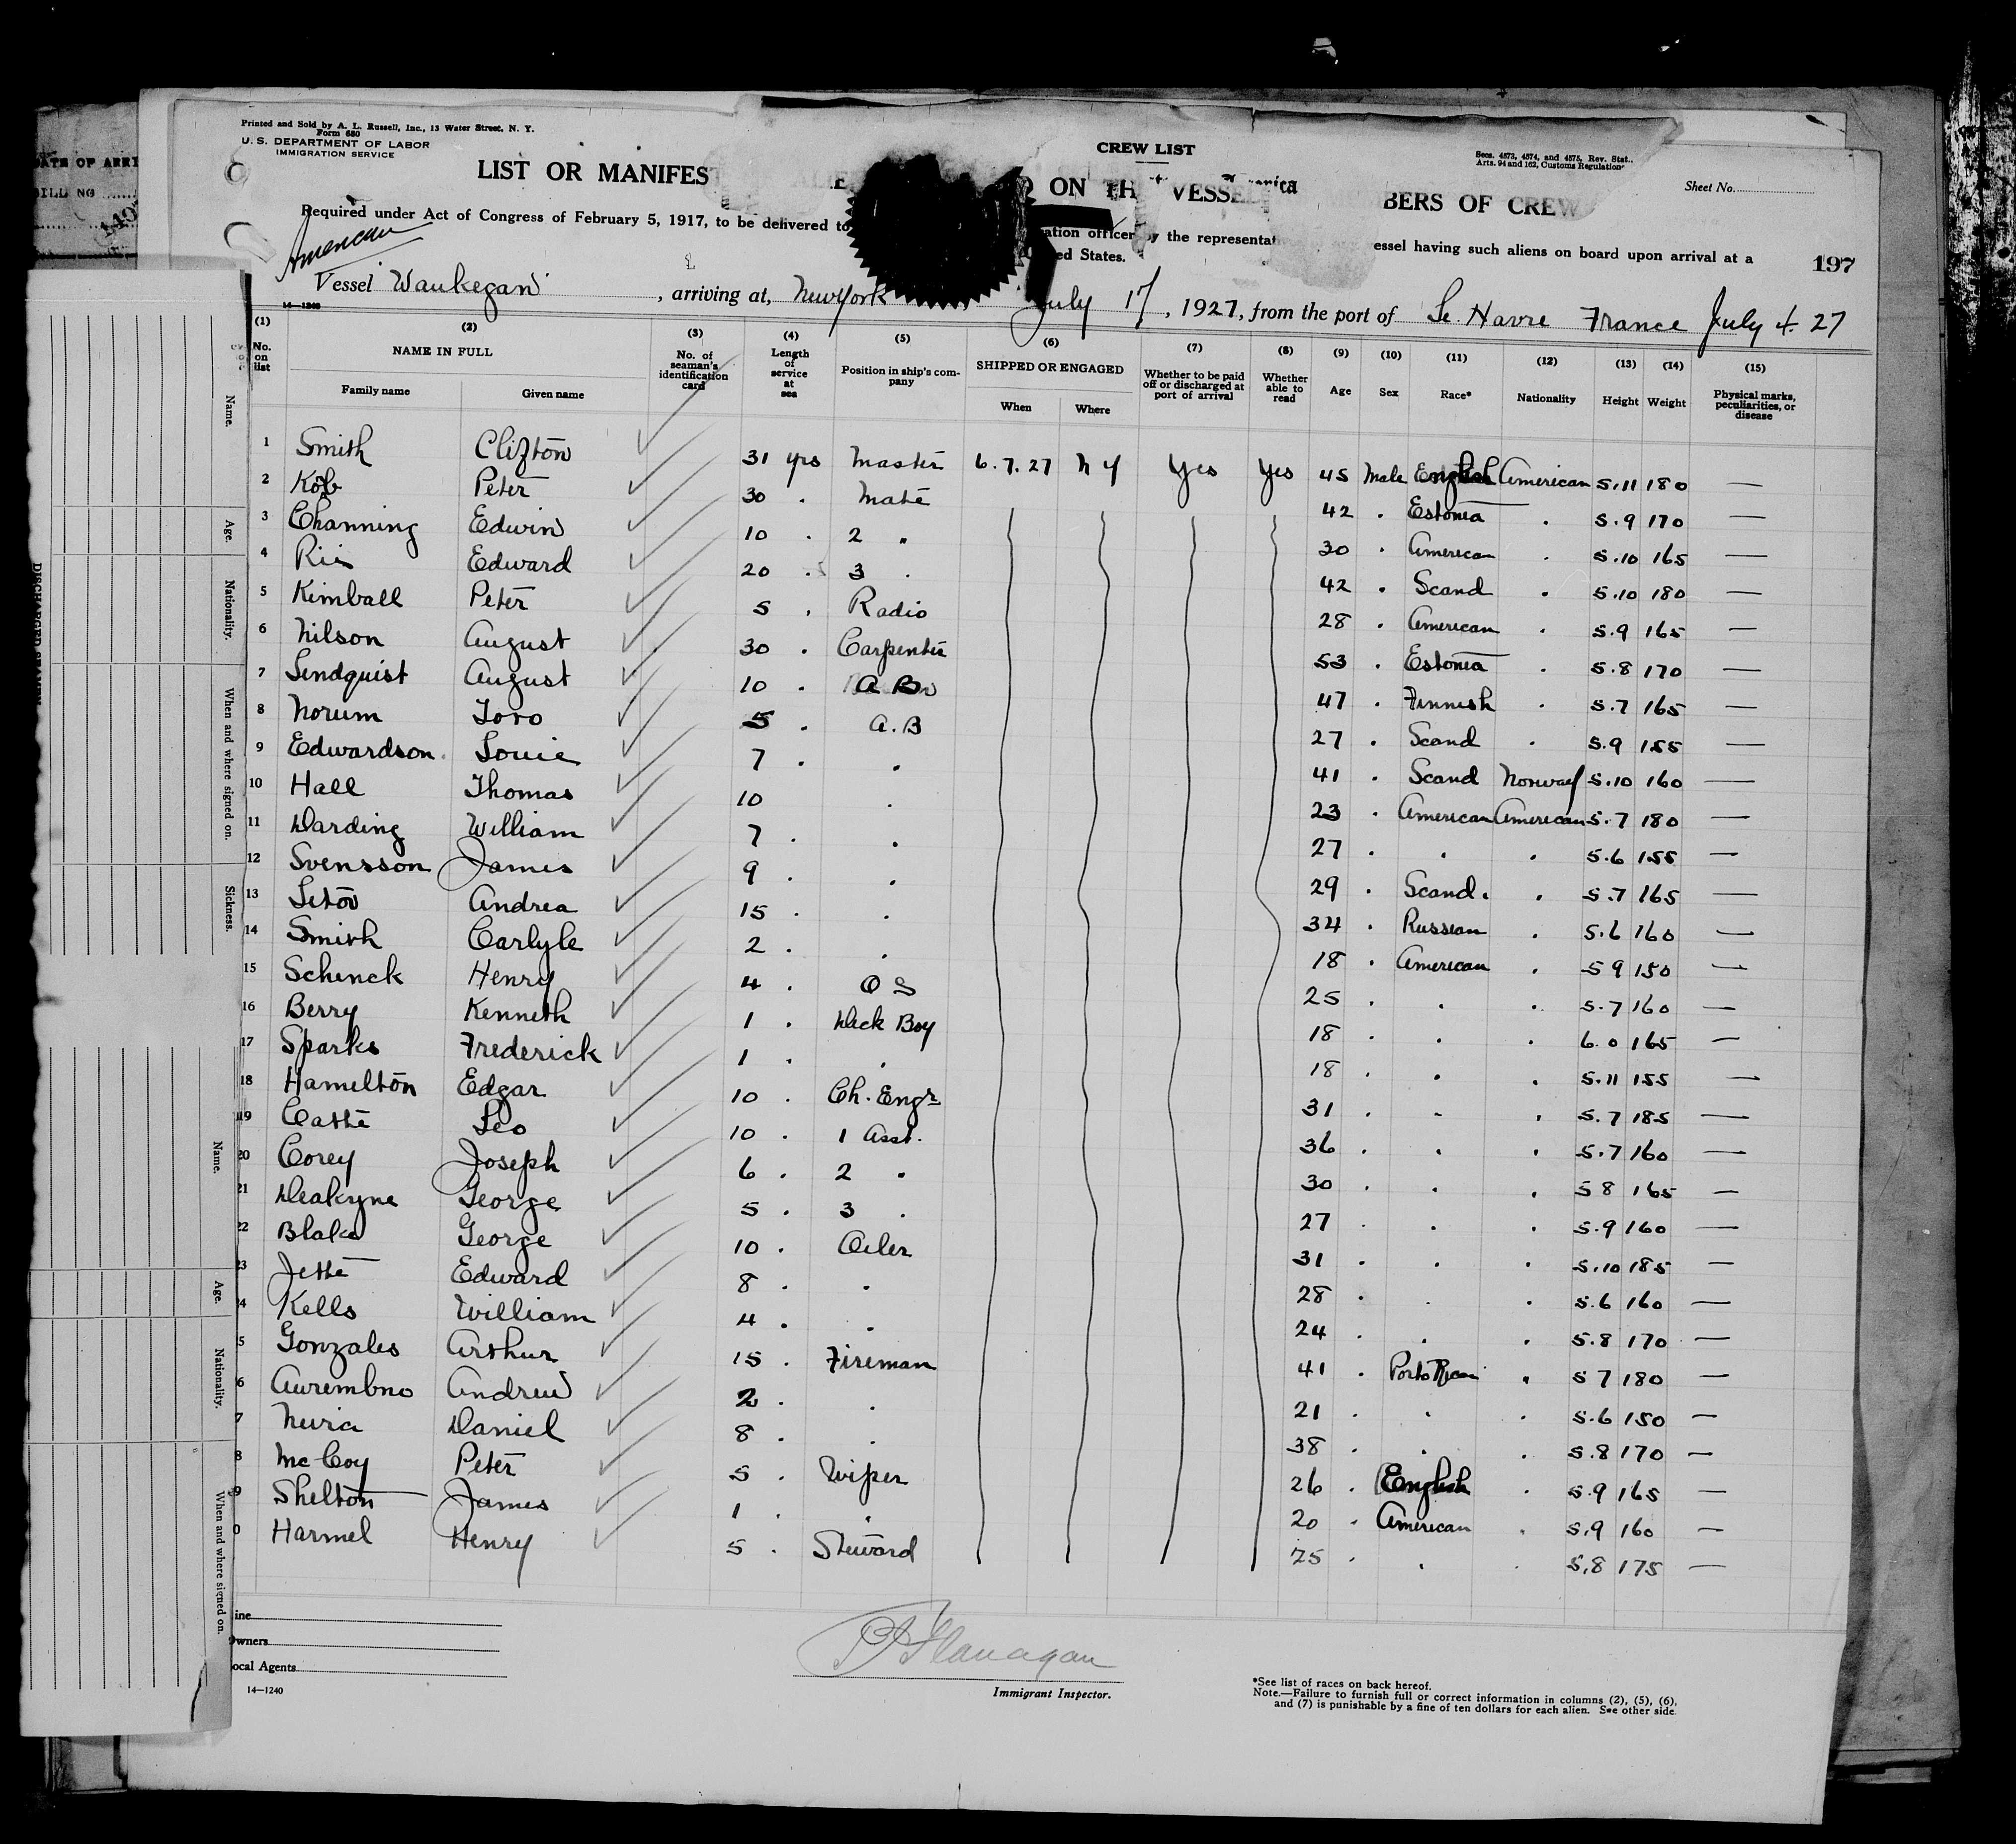 Printed and Sold by A. L. Russell, Inc., 13 Water Street, N. Y.
Form 680
U. S. DEPARTMENT OF LABOR
IMMIGRATION SERVICE
CREW LIST
Secs. 4573, 4574, and 4575, Rev. Stat.,
Arts. 94 and 162, Customs Regulation
Sheet No.
LIST OR MANIFES ALIE ON TH VESSEL BERS OF CREW
Required under Act of Congress of February 5, 1917, to be delivered to ration officer by the representat essel having such aliens on board upon arrival at a
ed States.
197
American
Vessel Waukegan, arriving at, New York July 17, 1927, from the port of Le Havre France July 4. 27
14—1240
(1) (2) (3) (4) (5) (6) (7) (8) (9) (10) (11) (12) (13) (14) (15)
No. on list NAME IN FULL Family name Given name No. of seaman's identification card Length of service at sea Position in ship's company SHIPPED OR ENGAGED When Where Whether to be paid off or discharged at port of arrival Whether able to read Age Sex Race* Nationality Height Weight Physical marks, peculiarities, or disease
1 Smith Clifton 31 yrs Master 6.7.27 N Y Yes Yes 45 Male English American 5.11 180 —
2 Kob Peter 30 . Mate 42 . Estonia . 5.9 170 —
3 Channing Edwin 10 . 2 " 30 . American . 5.10 165 —
4 Ris Edward 20 . 3 . 42 . Scand . 5.10 180 —
5 Kimball Peter 5 . Radio 28 . American . 5.9 165 —
6 Nilson August 30 . Carpenter 53 . Estonia . 5.8 170 —
7 Lindquist August 10 . A B 47 . Finnish . 5.7 165 —
8 Norum Toro 5 . A.B 27 . Scand . 5.9 155 —
9 Edwardson Louie 7 . . 41 . Scand Norway 5.10 160 —
10 Hall Thomas 10 . 23 . American American 5.7 180 —
11 Harding William 7 . . 27 . . . 5.6 155 —
12 Svensson James 9 . . 29 . Scand. . 5.7 165 —
13 Letov Andrea 15 . . 34 . Russian . 5.6 160 —
14 Smith Carlyle 2 . . 18 . American . 5 9 150 —
15 Schenck Henry 4 . O S 25 . . . 5.7 160 —
16 Berry Kenneth 1 . Deck Boy 18 . . . 6.0 165 —
17 Sparks Frederick 1 . . 18 . . . 5.11 155 —
18 Hamelton Edgar 10 . Ch. Engr 31 . . . 5.7 185 —
19 Caste Leo 10 . 1 Asst. 36 . . . 5.7 160 —
20 Corey Joseph 6 . 2 " 30 . . . 5 8 165 —
21 Deakyne George 5 . 3 . 27 . . . 5.9 160 —
22 Blake George 10 . Oiler 31 . . . 5.10 185 —
3 Jette Edward 8 . . 28 . . . 5.6 160 —
4 Kells William 4 . . 24 . . . 5.8 170 —
5 Gonzales Arthur 15 . Fireman 41 . Porto Rican . 5 7 180 —
6 Andrew 2 . . 21 . . . 5.6 150 —
7 Daniel 8 . . 38 . . . 5.8 170 —
8 McCoy Peter 5 . Wiper 26 . English . 5.9 165 —
9 Shelton James 1 . . 20 . American . 5.9 160 —
0 Harmel Henry 5 . Steward 25 . . . 5.8 175 —
ine
Owners
ocal Agents
14—1240
Flanagan
Immigrant Inspector.
*See list of races on back hereof.
Note.—Failure to furnish full or correct information in columns (2), (5), (6),
and (7) is punishable by a fine of ten dollars for each alien. See other side.
Name.
Age.
Nationality.
When and where signed on.
Sickness.
Name.
Age.
Nationality.
When and where signed on.
DISCHARGED SEAMEN